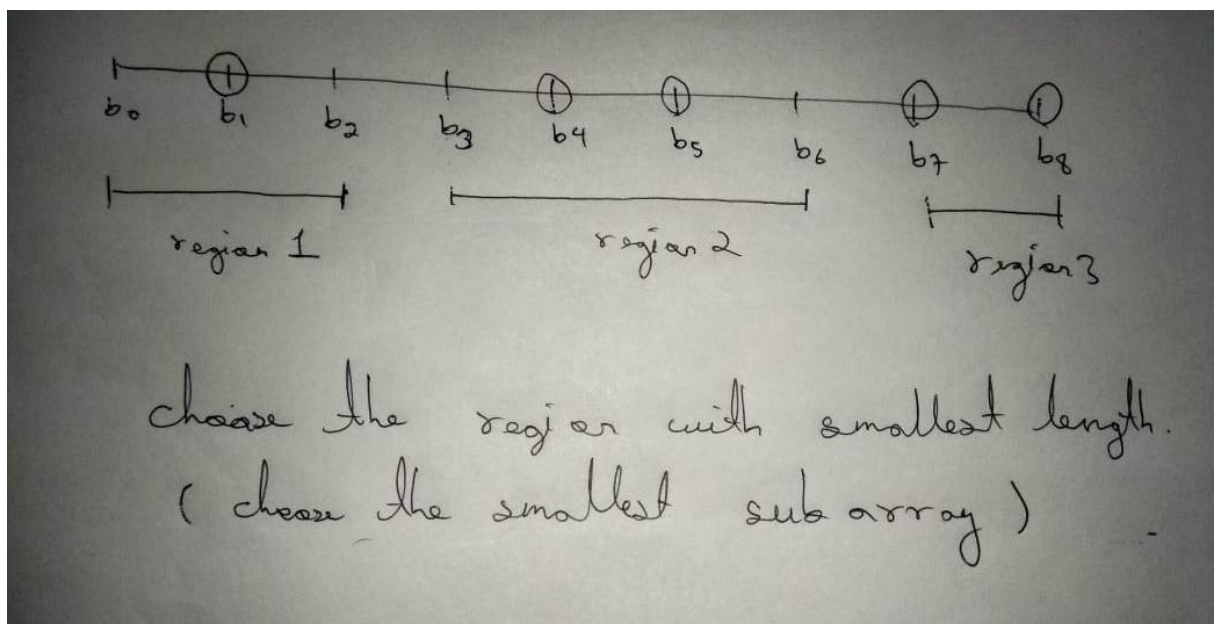 b0 b1 b2 b3 b4 b5 b6 b7 b8
region 1 region 2 region 3
choose the region with smallest length.
(choose the smallest sub array)